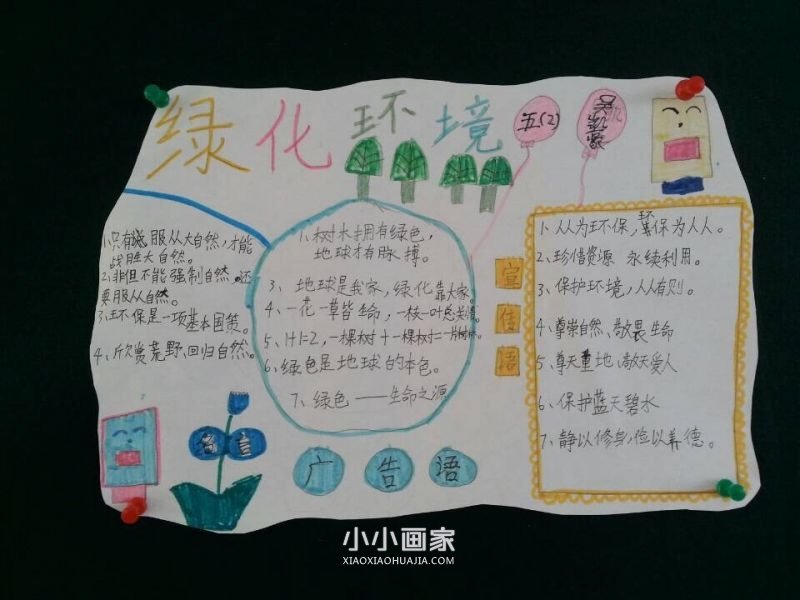 绿化环境
五(2)
1、只有 服从大自然，才能
战胜大自然。
2、非但不能强制自然。还
要服从自然。
3、环保是一项基本国策。
4、欣赏荒野、回归自然。
名言
1、树木拥有绿色，
地球才有脉搏。
3、地球是我家，绿化靠大家。
4、一花一草皆生命，一枝一叶总关情。
5、1+1=2，一棵树+一棵树=一片树林
6、绿色是地球的本色。
7、绿色——生命之源
广告语
宣传语
1、人人为环保，环保为人人。
2、珍惜资源 永续利用。
3、保护环境，人人有则。
4、尊崇自然、敬畏生命
5、尊天重地、敬天爱人
6、保护蓝天碧水
7、静以修身，俭以养德。
小小画家
XIAOXIAOHUAJIA.COM